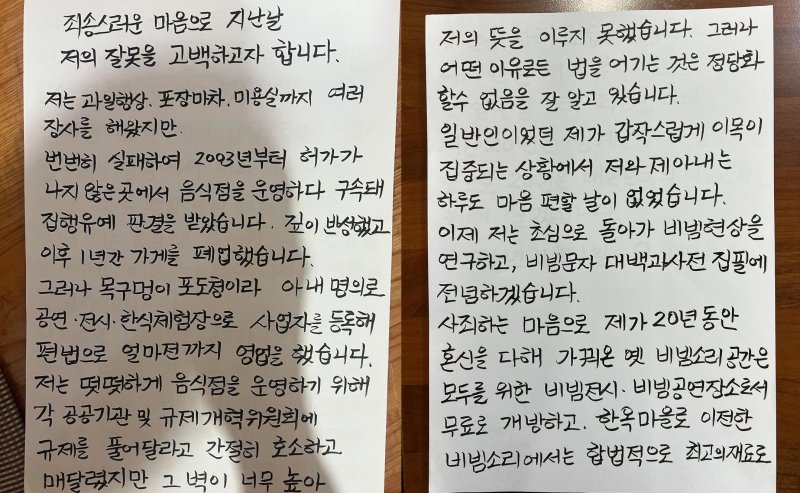 죄송스러운 마음으로 지난날
저의 잘못을 고백하고자 합니다.
저는 과일행상, 포장마차, 미용실까지 여러
장사를 해왔지만
번번히 실패하여 2003년부터 허가가
나지 않은 곳에서 음식점을 운영하다 구속돼
집행유예 판결을 받았습니다. 깊이 반성했고
이후 1년간 가게를 폐업했습니다.
그러나 목구멍이 포도청이라 아내 명의로
공연·전시·한식체험장으로 사업자를 등록해
편법으로 얼마전까지 영업을 했습니다.
저는 떳떳하게 음식점을 운영하기 위해
각 공공기관 및 규제개혁위원회에
규제를 풀어달라고 간절히 호소하고
매달렸지만 그 벽이 너무 높아
저의 뜻을 이루지 못했습니다. 그러나
어떤 이유로든 법을 어기는 것은 정당화
할수 없음을 잘 알고 있습니다.
일반인이었던 제가 갑작스럽게 이목이
집중되는 상황에서 저와 제아내는
하루도 마음 편할 날이 없었습니다.
이제 저는 초심으로 돌아가 비빔현상을
연구하고, 비빔문자 대백과사전 집필에
전념하겠습니다.
사죄하는 마음으로 제가 20년 동안
혼신을 다해 가꿔온 옛 비빔소리 공간은
모두를 위한 비빔전시·비빔공연장소로서
무료로 개방하고, 한옥마을로 이전한
비빔소리에서는 합법적으로 최고의재료로